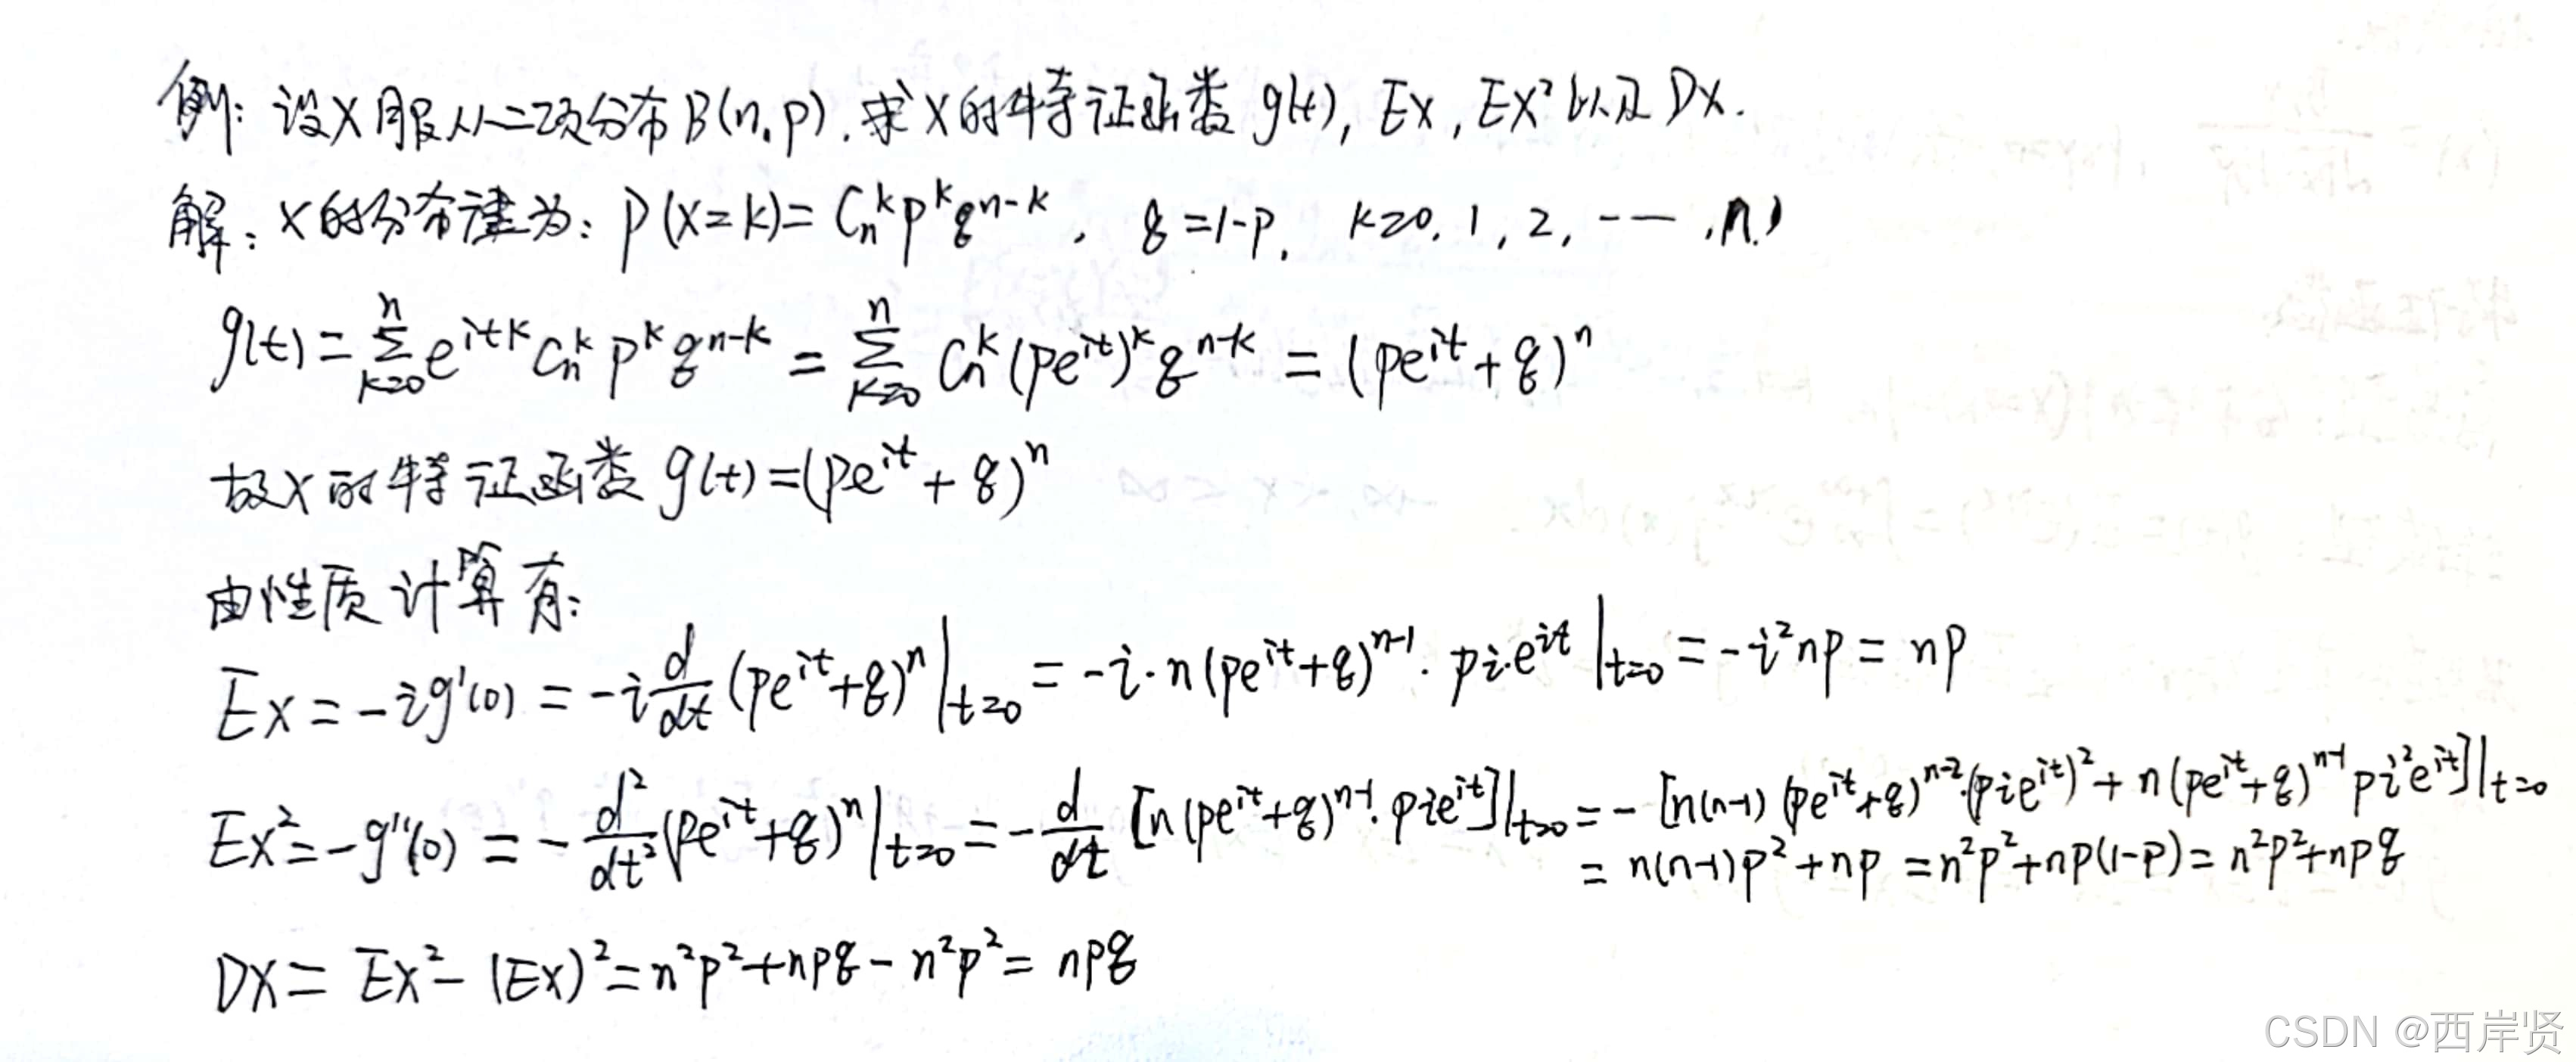 例：设X服从二项分布B(n,p)，求X的特征函数g(t)，EX，EX²以及DX.
解：X的分布律为：P(X=k)=C_n^k p^k q^{n-k}，q=1-p，k=0,1,2,⋯,n
g(t)=∑_{k=0}^{n} e^{itk} C_n^k p^k q^{n-k} = ∑_{k=0}^{n} C_n^k (pe^{it})^k q^{n-k} = (pe^{it}+q)^n
故X的特征函数g(t)=(pe^{it}+q)^n
由性质计算有：
EX=-ig'(0)=-i d/dt (pe^{it}+q)^n |_{t=0} = -i·n(pe^{it}+q)^{n-1}·pi·e^{it} |_{t=0} = -i²np = np
EX²=-g''(0)=-d²/dt² (pe^{it}+q)^n |_{t=0} = -d/dt [n(pe^{it}+q)^{n-1}·pie^{it}] |_{t=0} = -[n(n-1)(pe^{it}+q)^{n-2}·(pie^{it})²+n(pe^{it}+q)^{n-1}pi²e^{it}] |_{t=0}
=n(n-1)p²+np=n²p²+np(1-p)=n²p²+npq
DX=EX²-(EX)²=n²p²+npq-n²p²=npq
CSDN @西岸贤